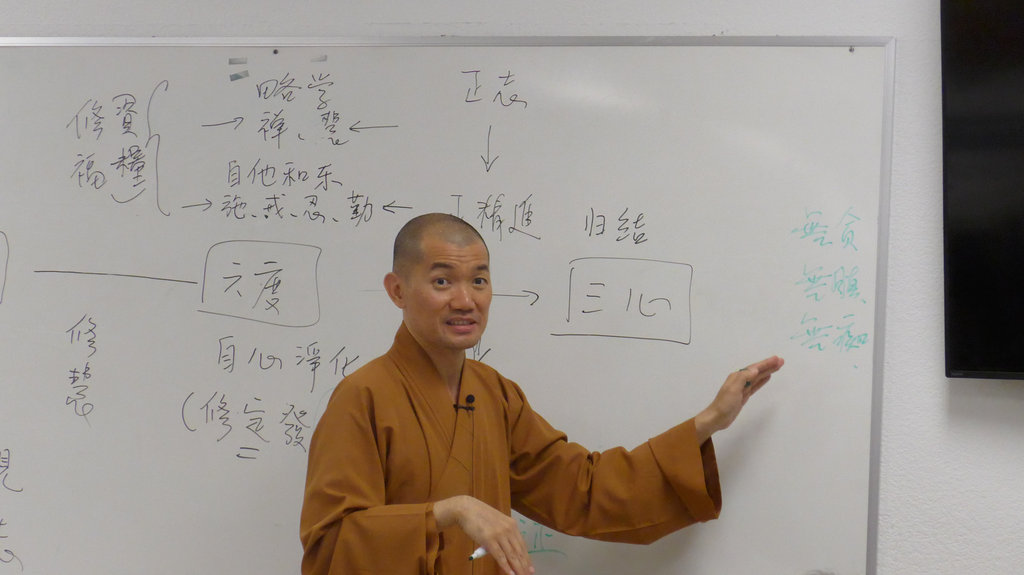 修福
資糧
略学
禅、慧
自他和乐
施、戒、忍、勤
正志
正精進
归结
無貪
無瞋
無痴
六度
三心
修慧
自心淨化
(修定發